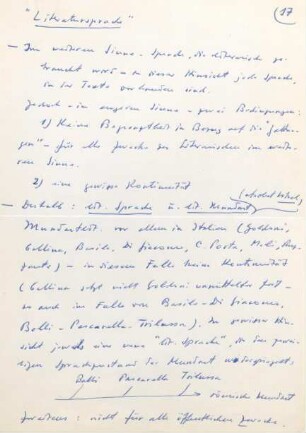 (17)
"Literatursprache"
— Im weiteren Sinne - Sprache, die literarisch ge-
braucht wird - in dieser Hinsicht jede Sprache
in der Texte vorhanden sind.
Jedoch - im engeren Sinne - zwei Bedingungen:
1) Keine Begrenztheit in Bezug auf die "
" - für alle Zwecke des Literarischen im weite-
ren Sinne.
2) eine gewisse Kontinuität
— Deshalb: lit. Sprache u. lit. Mundart
Mundartlit. vor allem in Italien (Goldoni,
Gallina, Basile, Di Giacomo, C. Porta, Meli,
) - in diesem Falle keine Kontinuität
(Gallina setzt nicht Goldoni unmittelbar fort -
so auch im Falle von Basile - Di Giacomo,
Belli - Pascarella - Trilussa). In gewisser Hin-
sicht jeweils eine neue "lit. Sprache", die den jewei-
ligen Sprachzustand der Mundart widerspiegelt:
Belli Pascarella Trilussa
römische Mundart
: nicht für alle öffentlichen Zwecke.